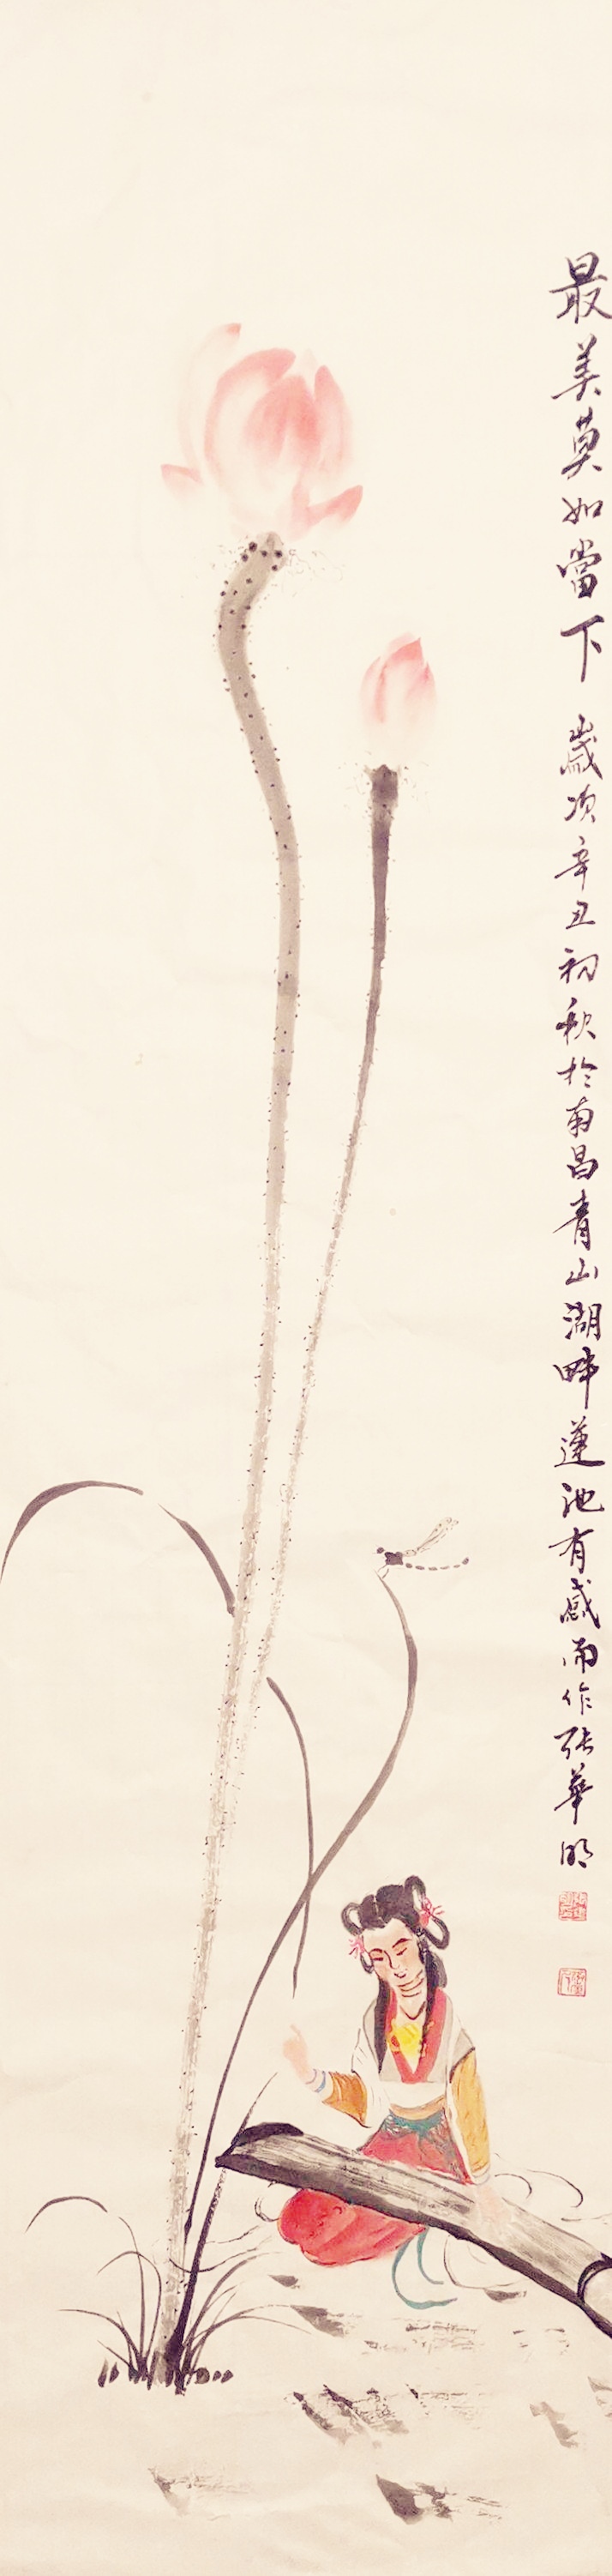 最美莫如當下 歲次辛丑初秋於南昌青山湖畔蓮池有感而作張華明